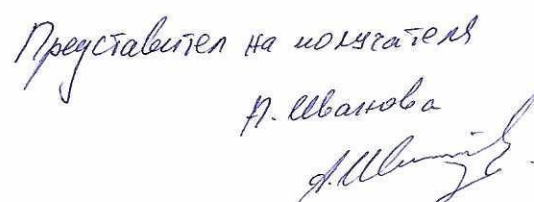 Представител на получателя
А. Иванова